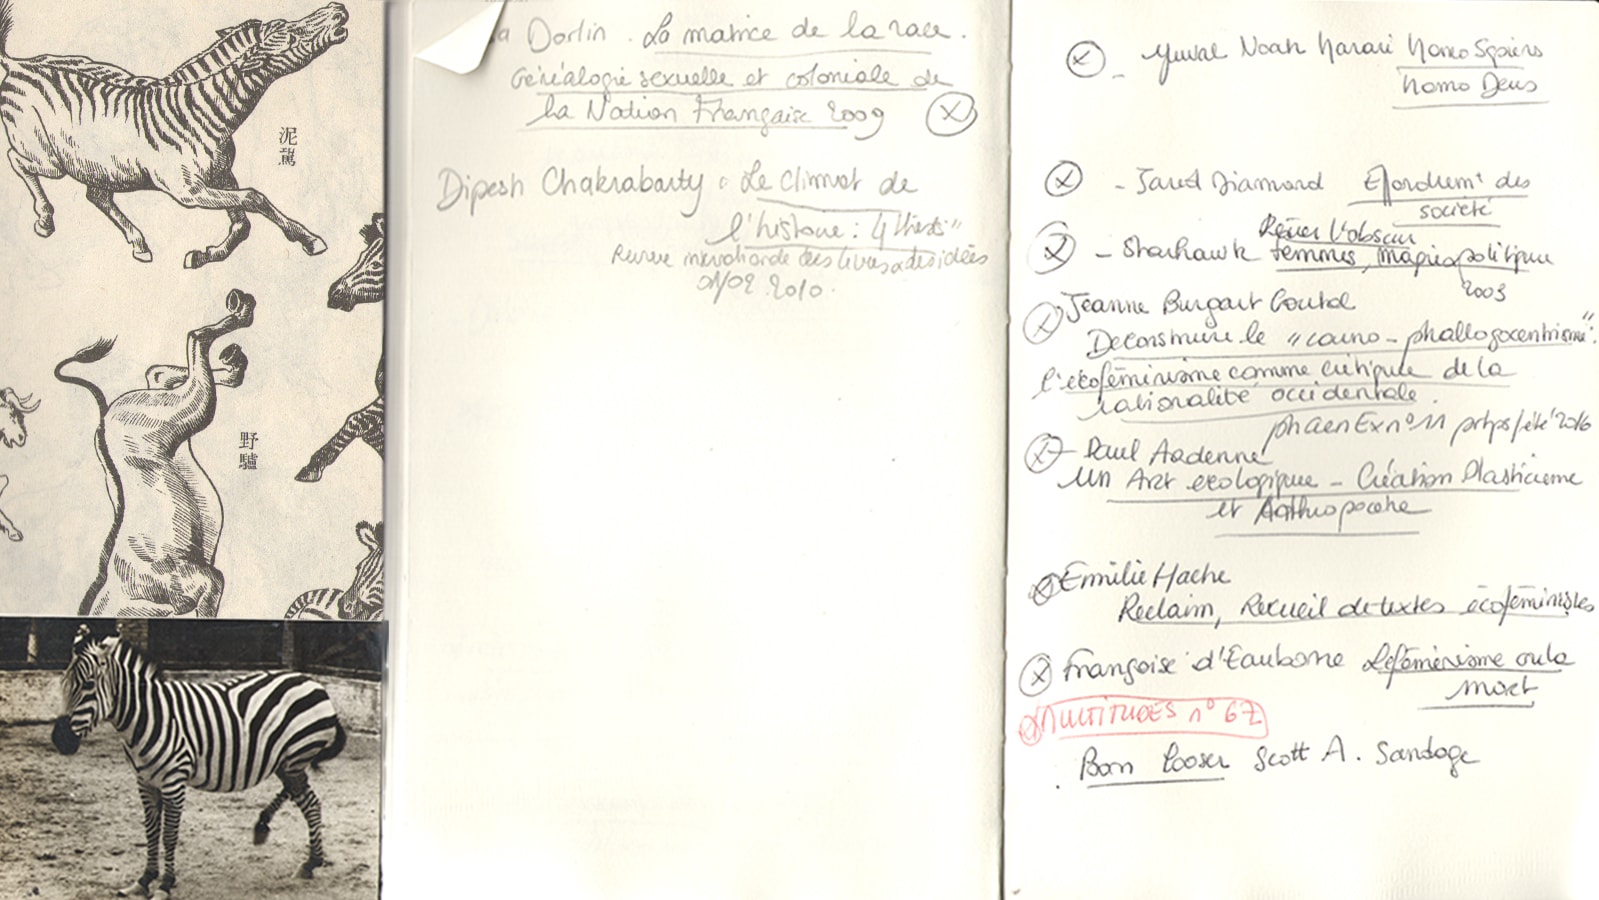 泥驢
野驢
a Dorlin . La matrice de la race .
Généalogie sexuelle et coloniale de
la Nation Française 2009
Dipesh Chakrabarty : Le climat de
l'histoire : 4 thèses"
Revue internationale des livres et des idées
01/02 . 2010 .
- Yuval Noah Harari Homo Sapiens
Homo Deus
- Jared Diamond Effondremt des
société
Rêver l'obscur
- Starhawk femmes, magie politique
2003
Jeanne Burgart Goutal
Déconstruire le "carno - phallogocentrisme" :
l'écoféminisme comme critique de la
rationalité occidentale .
phaenEx n° 11 prtps/été 2016
- Paul Ardenne
Un Art écologique - Création Plasticienne
et Anthropocène
Emilie Hache
Reclaim, Recueil de textes écoféministes
Françoise d'Eaubonne Le féminisme ou la
mort
MULTITUDES n° 67
Born Looser Scott A. Sandage